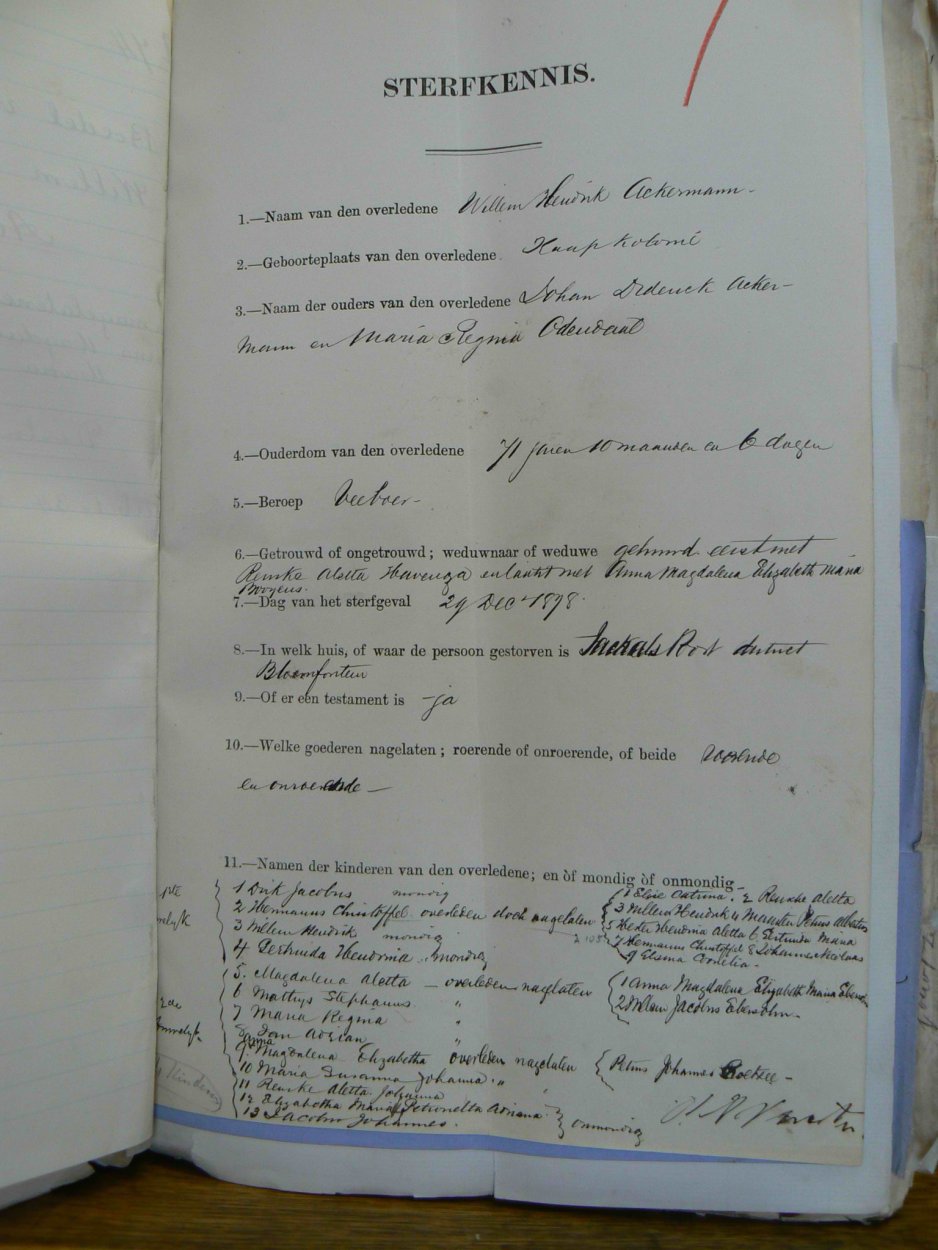 STERFKENNIS.
1.—Naam van den overledene Willem Hendrik Ackermann
2.—Geboorteplaats van den overledene Kaap Kolonie
3.—Naam der ouders van den overledene Johan Diderick Acker-
mann en Maria Regina Odendaal
4.—Ouderdom van den overledene 71 jaren 10 maanden en 6 dagen
5.—Beroep Veeboer
6.—Getrouwd of ongetrouwd; weduwnaar of weduwe gehuwd eerst met
Renske Aletta Havenga en laatst met Anna Magdalena Elizabeth Maria
Booyens.
7.—Dag van het sterfgeval 29 Dec 1898
8.—In welk huis, of waar de persoon gestorven is Jackals district
Bloemfontein
9.—Of er een testament is ja
10.—Welke goederen nagelaten; roerende of onroerende, of beide roerende
en onroerende —
11.—Namen der kinderen van den overledene; en òf mondig òf onmondig
1 Dirk Jacobus mondig
2 Hermanus Christoffel overleden doch nagelaten
3 Willem Hendrik mondig
4 Gertruida Hendrina mondig
1 Elsie Catrina, 2 Renske Aletta
3 Willem Hendrik 4 Petrus Albertus
5 Hester Hendrina Aletta 6 Gertruida Maria
7 Hermanus Christoffel 8 Johannes Nicolaas
9 Elsina Cornelia -
5. Magdalena Aletta - overleden nagelaten
6 Mathys Stephanus "
7 Maria Regina "
8 Jan Adrian
1 Anna Magdalena Elizabeth Maria
2 Willem Jacobus Ebersohn
9. Anna Magdalena Elizabetha overleden nagelaten
Petrus Johannes Coetzee -
10 Maria Susanna Johanna "
11 Renske Aletta Johanna "
12 Elizabetha Maria Petronella Adriana
13 Jacobus Johannes. onmondig